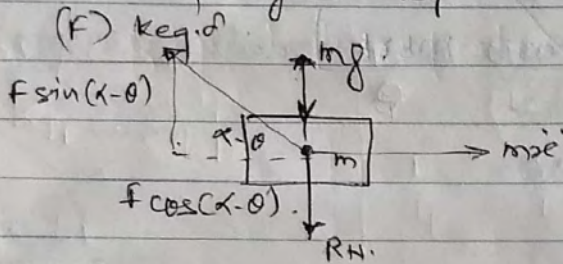 (F) Keq.δ
mg.
F sin(α-θ)
α-θ
m
mẍ
f cos(α-θ).
RN.